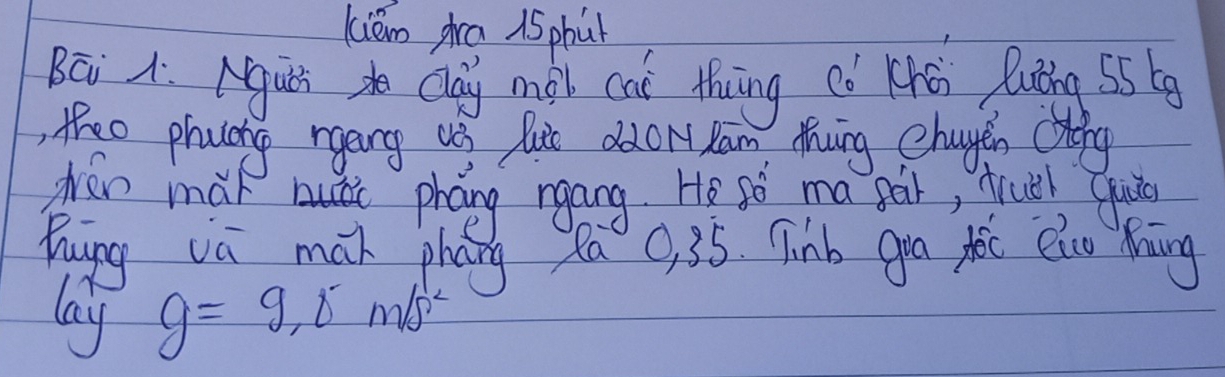 Kiểm tra 15 phút
Bài 1: Người ta đẩy một cái thùng có khối lượng 55 kg
, theo phương ngang với lực 220N làm thùng chuyển động
trên mặt phẳng ngang. Hệ số ma sát, trượt giữa
thùng và mặt phẳng là 0,35. Tính gia tốc của thùng
lấy g = 9,8 m/s²